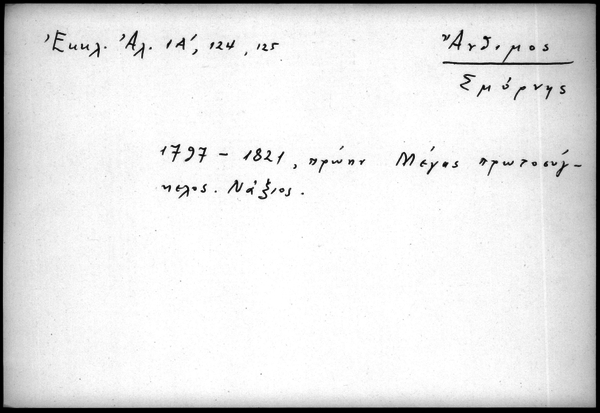 Ἐκκλ. Ἀλ. ΙΑ΄, 124, 125
Ἄνθιμος
Σμύρνης
1797 - 1821, πρώην Μέγας πρωτοσύγ-
κελος. Νάξιος.